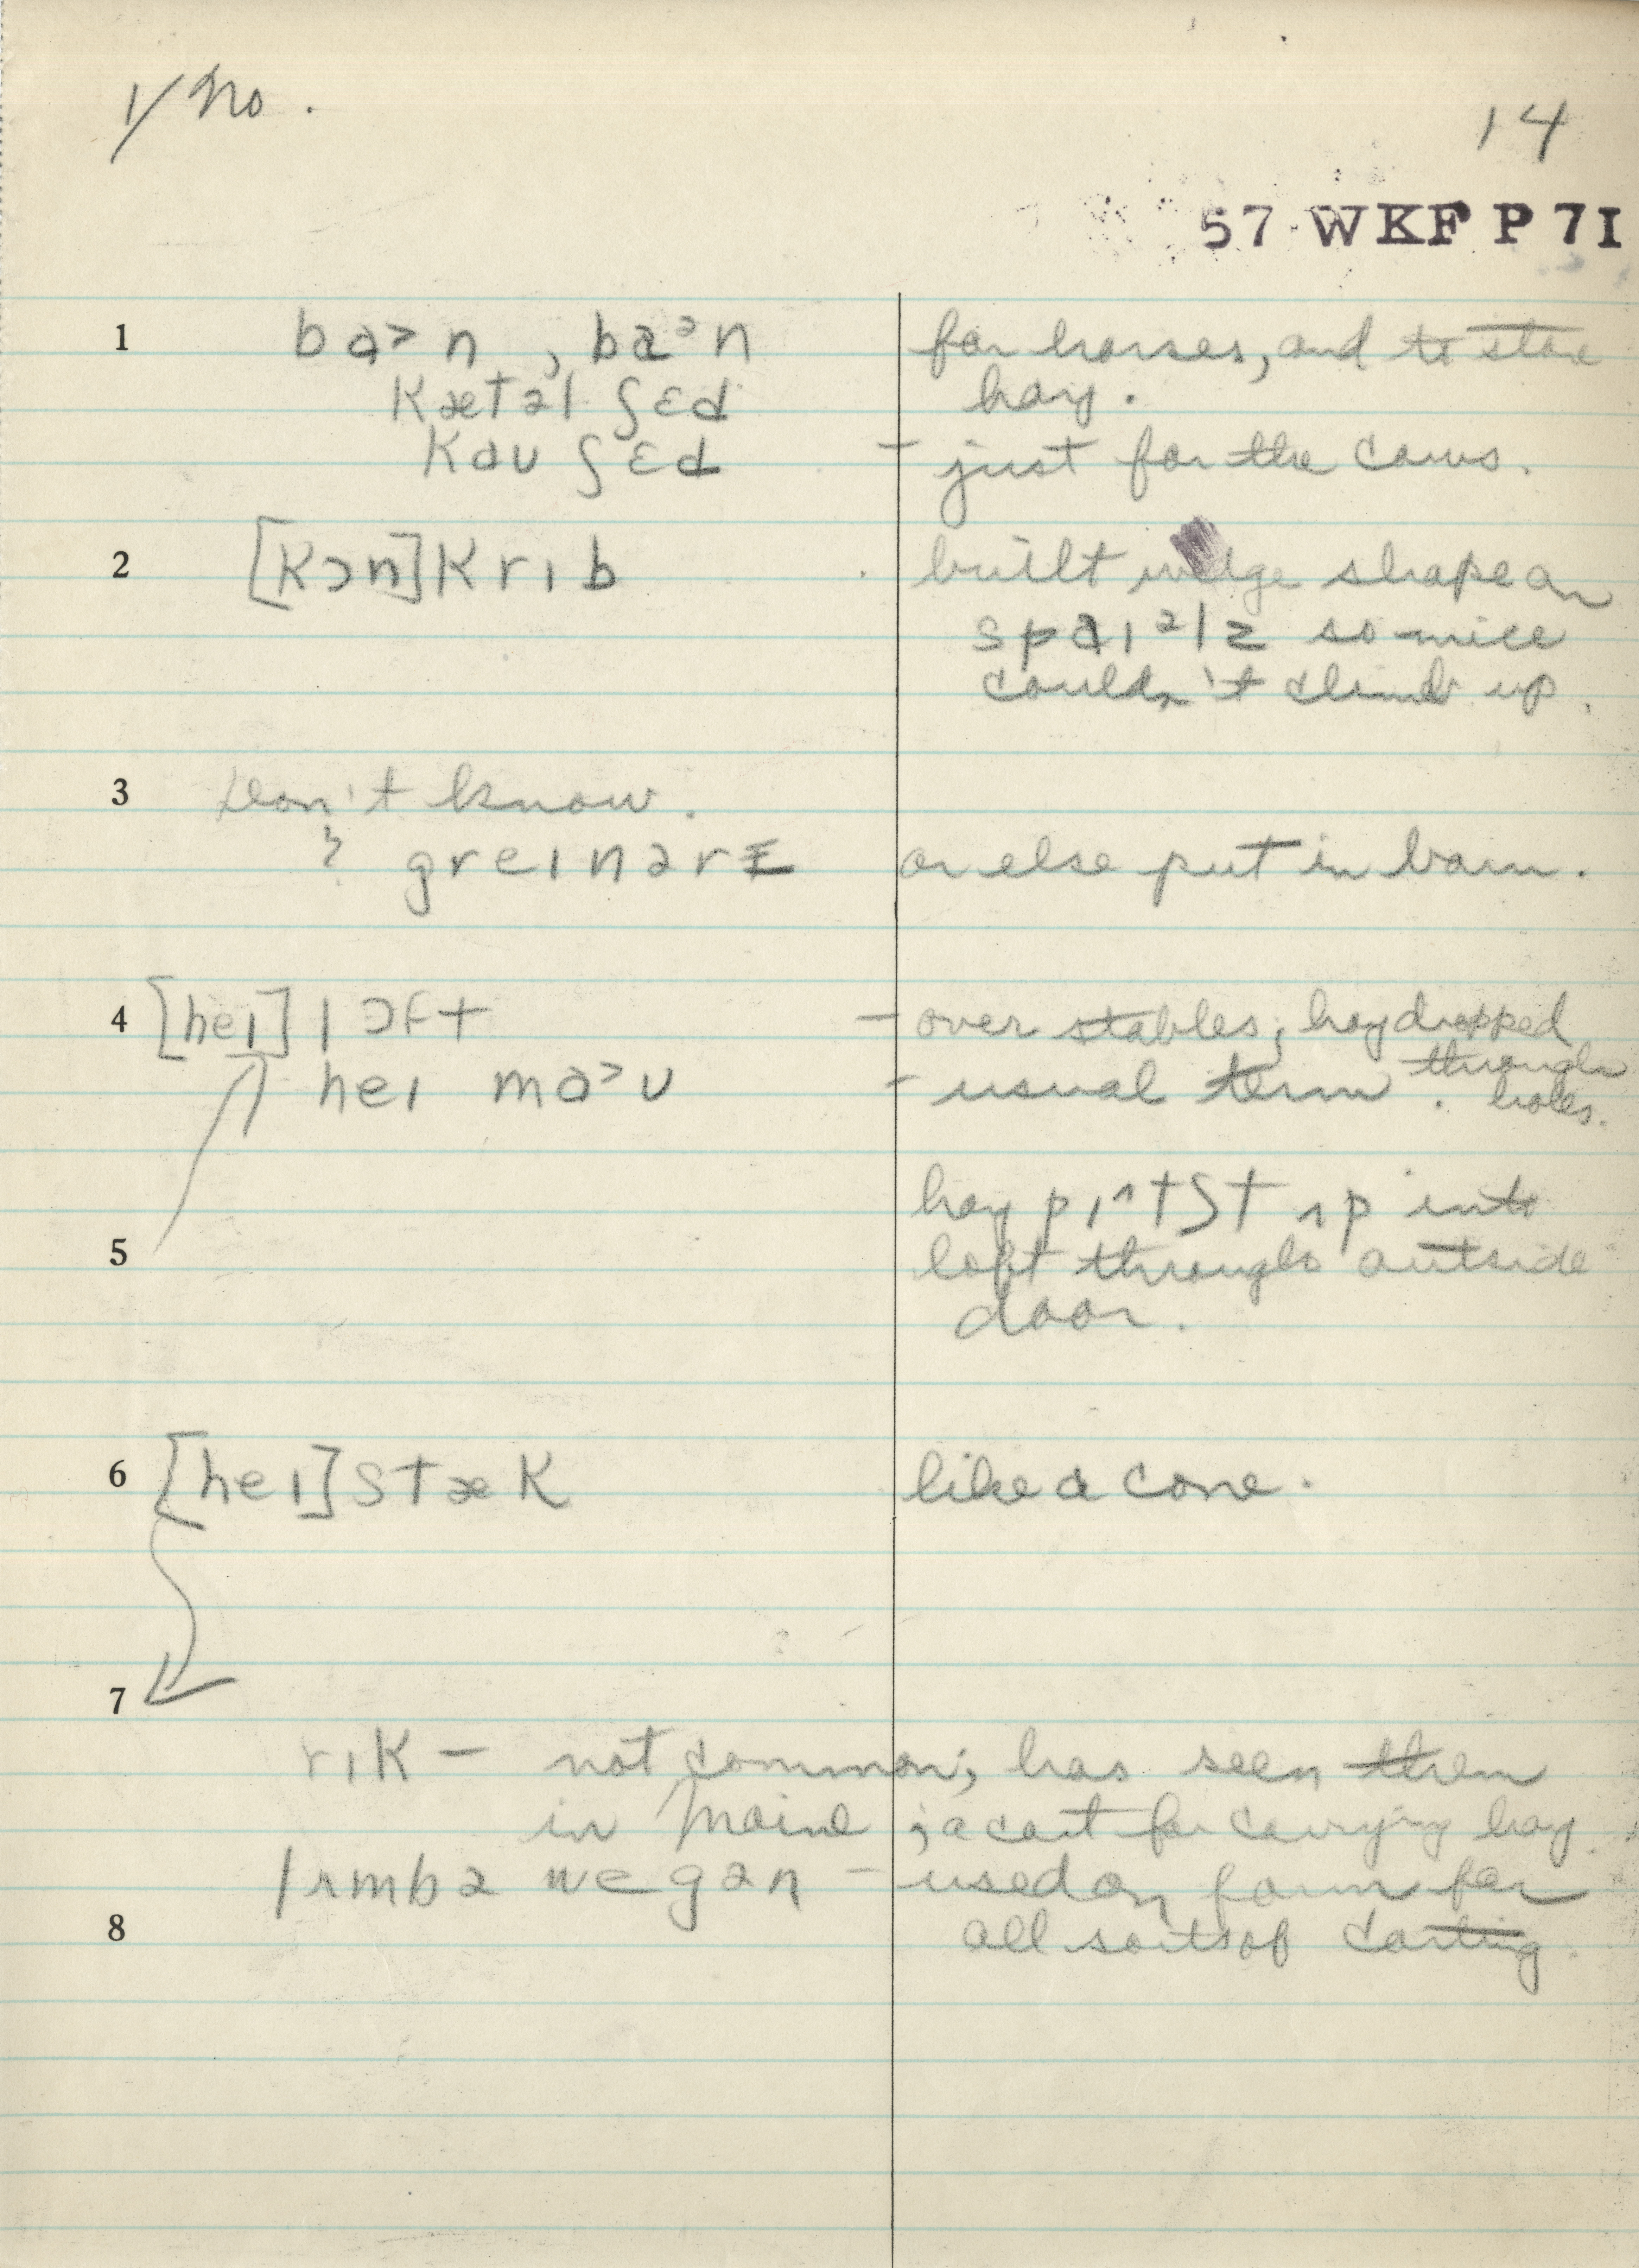 1/ No.
14
57 WKF P 71
1 ba>n , baᵊn for horses, and to store
kætəl ʃɛd hay.
kau ʃɛd – just for the cows.
2 [kɔn]krɪb built wedge shape on
spaɪᵊlz so mice
couldn't climb up.
3 Don't know.
? greɪnərɪ or else put in barn.
4 [heɪ] lɔft – over stables; hay dropped
through
heɪ ma>ʊ – usual term. holes.
hay pɪ^tʃt ʌp into
5 loft through outside
door.
6 [heɪ]stæk like a cone.
7
rɪk – not common; has seen them
in Maine ; a cart for carrying hay.
lʌmbə wegən – used on farm for
8 all sorts of carting.